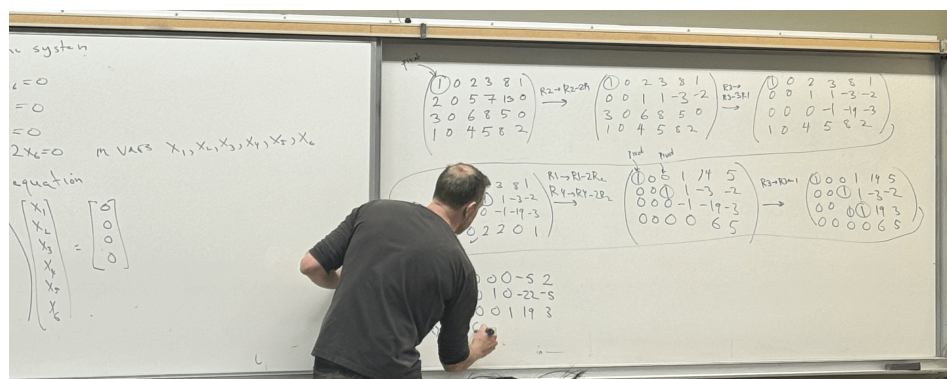 system
=0
=0
=0
2X₆=0 in vars X₁, X₂, X₃, X₄, X₅, X₆
equation
X₁ 0
X₂ 0
X₃ = 0
X₄ 0
X₅
X₆
pivot
1 0 2 3 8 1
2 0 5 7 13 0
3 0 6 8 5 0
1 0 4 5 8 2
R2→R2-2R1
1 0 2 3 8 1
0 0 1 1 -3 -2
3 0 6 8 5 0
1 0 4 5 8 2
R3→R3-3R1
1 0 2 3 8 1
0 0 1 1 -3 -2
0 0 0 -1 -19 -3
1 0 4 5 8 2
3 8 1
1 -3 -2
0 -1 -19 -3
0 2 2 0 1
R1→R1-2R2
R4→R4-2R2
pivot pivot
1 0 0 1 14 5
0 0 1 1 -3 -2
0 0 0 -1 -19 -3
0 0 0 0 6 5
1 0 0 1 14 5
0 0 1 1 -3 -2
0 0 0 1 19 3
0 0 0 0 6 5
0 0 0 -5 2
0 1 0 -22 -5
0 0 1 19 3